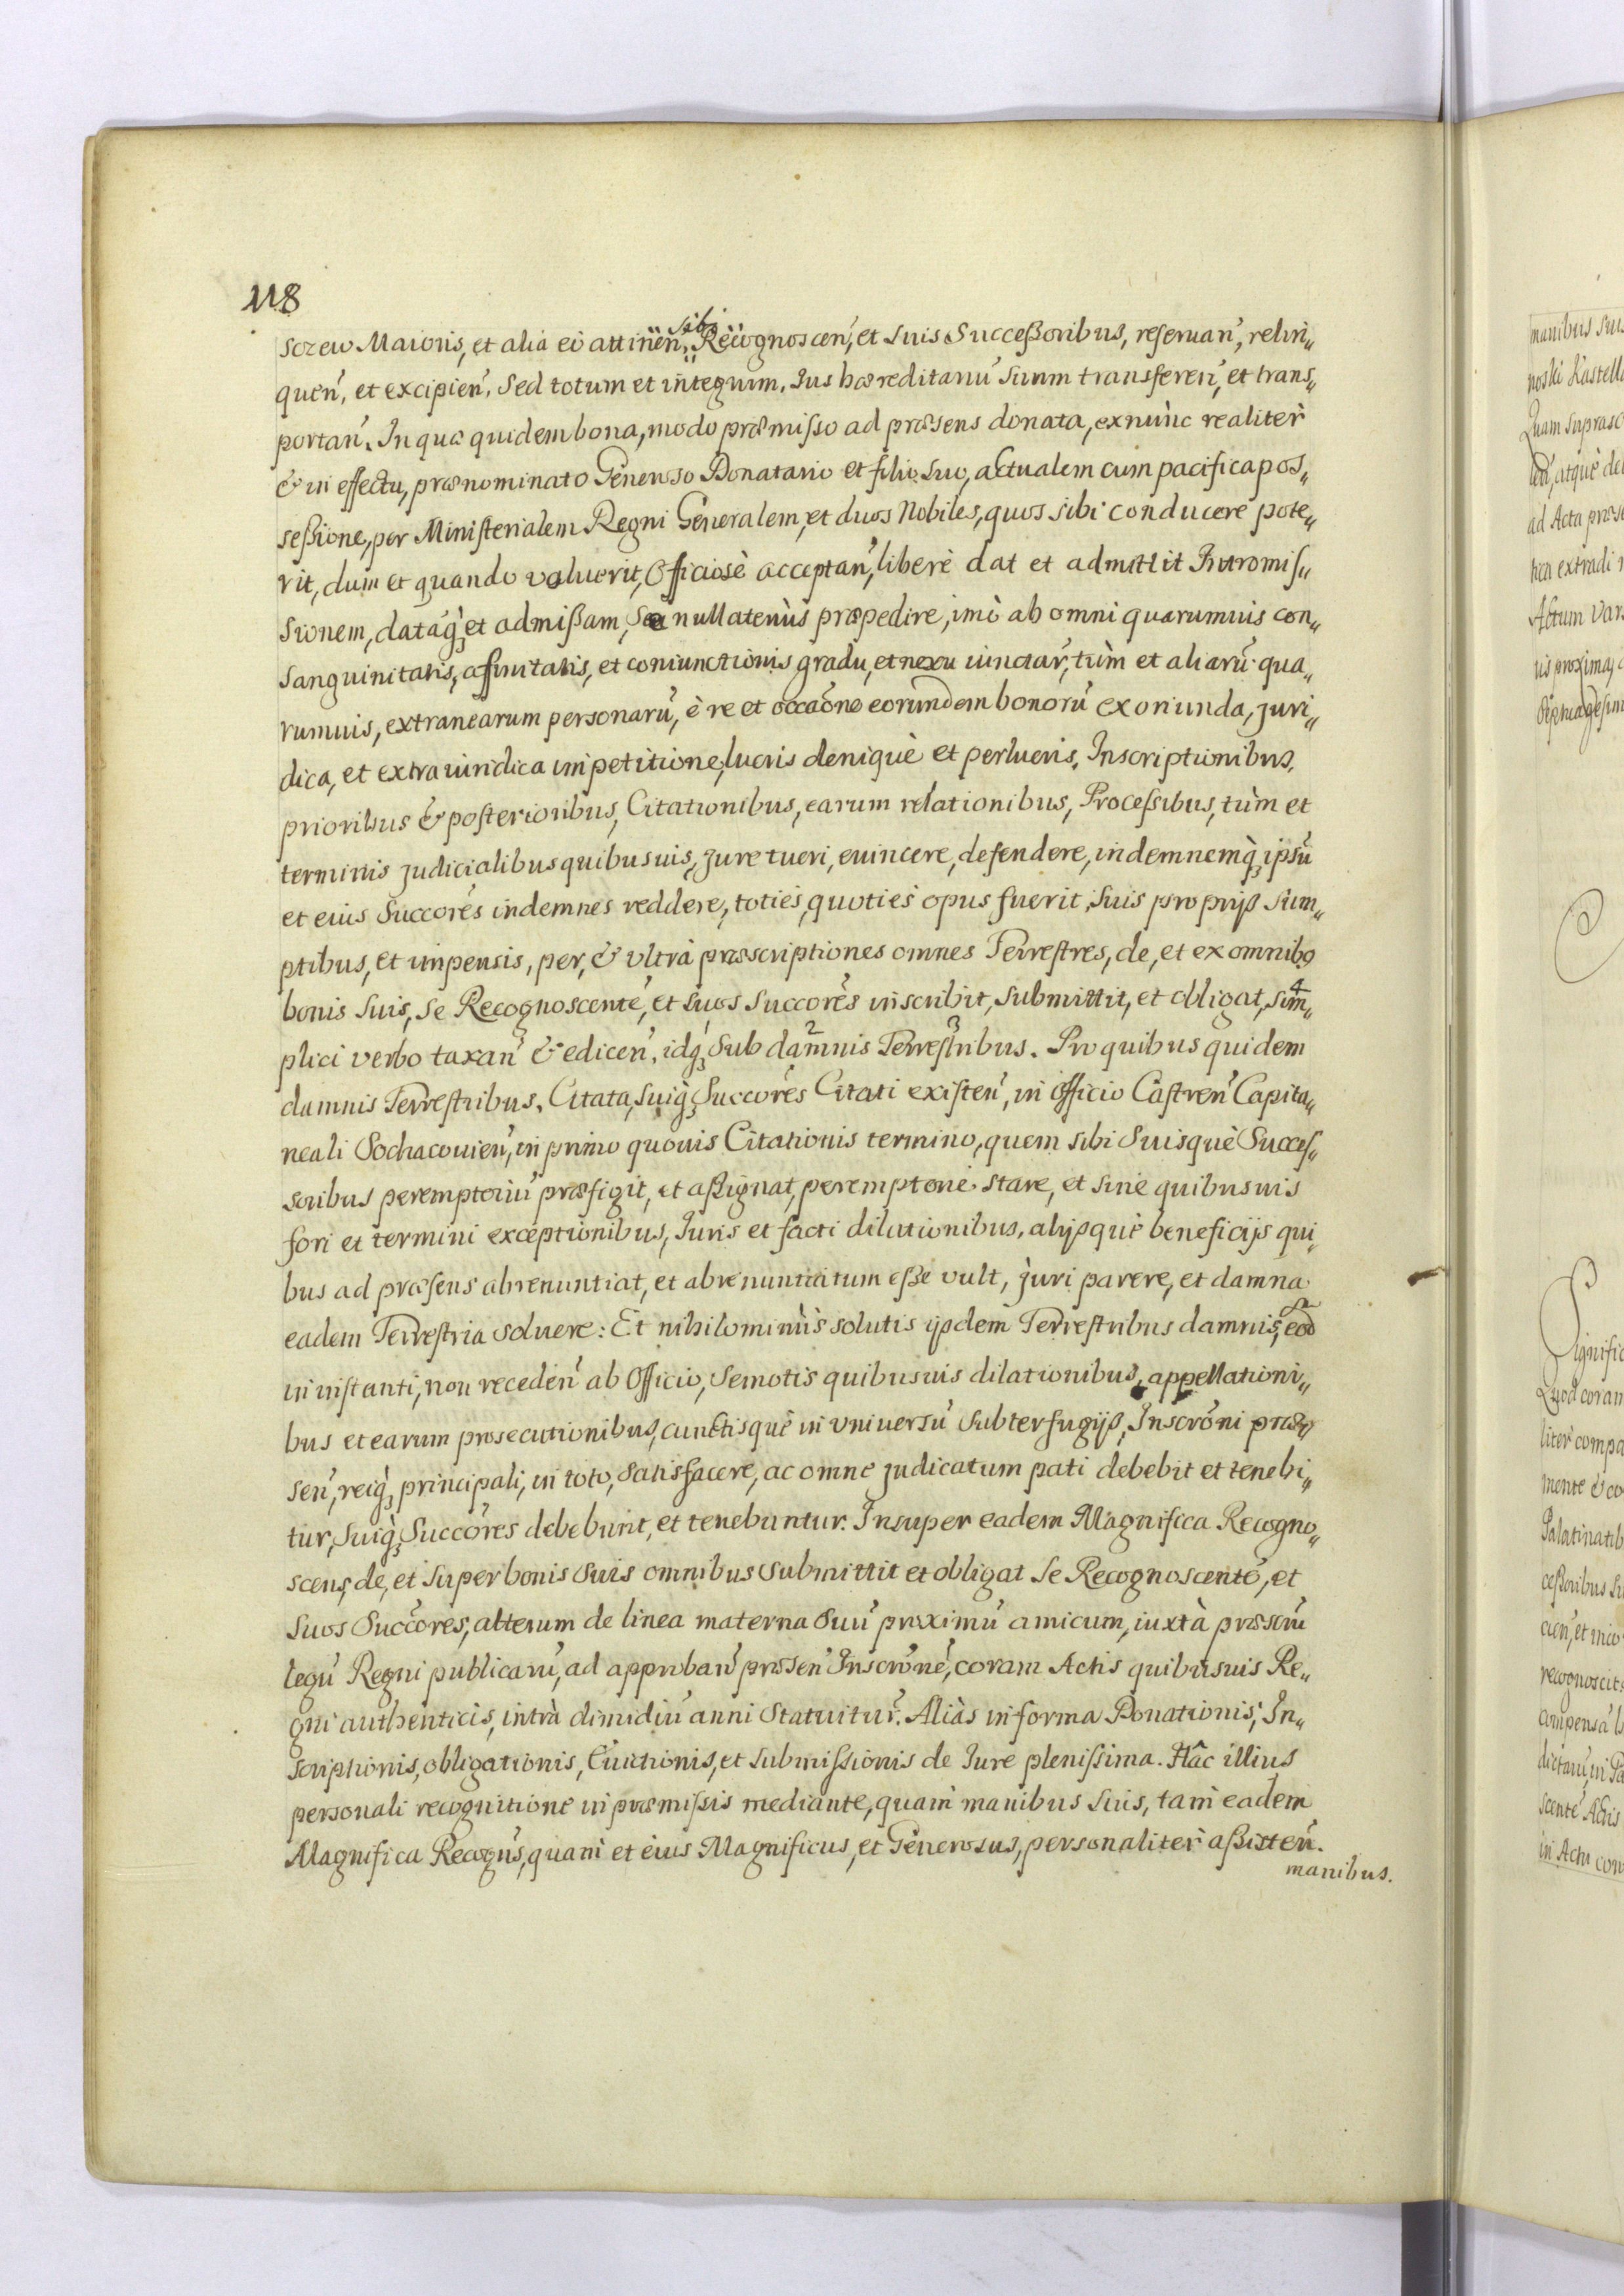 118
sozew Maioris, et alia ei attinen̄, sibi Recognoscen̄, et suis Successoribus, reseruan̄, relin„
quen̄, et excipien̄. Sed totum et integrum, Jus hæreditariū suum transferen̄, et trans„
portan̄. In quæ quidem bona, modo præmisso ad præsens donata, exnùnc realitèr
& in effectu, prænominato Generoso Donatario et filio suo, actualem cum pacifica pos„
sessione, per Ministerialem Regni Generalem, et duos Nobiles, quos sibi conducere pote„
rit, dum et quando voluerit, Officiosè acceptan̄, liberè dat et admittit Intromis„
sionem, datāq̨ et admissam, se nullatenùs præpedire, imò ab omni quarumuis con„
sanguinitatis, affinitatis, et coniunctionis gradu, et nexu iunctar̄, tùm et aliarū qua„
rumuis, extranearum personarū, è re et occāone eorundem bonorū exoriunda, juri„
dica, et extraiuridica impetitione, lucris deniquè et perlucris, Inscriptionibus,
prioribus & posterioribus, Citationibus, earum relationibus, Processibus, tùm et
terminis judicialibus quibusuis, jure tueri, euincere, defendere, indemnemq̨ ipsū
et eius Succōres indemnes reddere, toties, quoties opus fuerit, suis proprijs sum„
ptibus, et impensis, per, & vltrà præscriptiones omnes Terrestres, de, et ex omnibꝫ
bonis suis, se Recognoscentē, et suos succōres inscribit, submittit, et obligat, sim„ 4
plici verbo taxan̄ & edicen̄, idq̨ sub damnis Terrestribus. Pro quibus quidem
damnis Terrestribus, Citata, suiq̨ Succōres Citati existen̄, in Officio Castren̄ Capita„
neali Sochacouien̄, in primo quouis Citationis termino, quem sibi suisquè Succes„
soribus peremptoriū præfigit, et assignat, peremptoriè stare, et sine quibusuis
fori et termini exceptionibus, Juris et facti dilationibus, alijsquè beneficijs qui„
bus ad præsens abrenuntiat, et abrenuntiatum esse vult, juri parere, et damna
eadem Terrestria soluere: Et nihilominùs solutis ijsdem Terrestribus damnis, eod
in instanti, non receden̄ ab Officio, semotis quibusuis dilationibus, appellationi„
bus et earum prosecutionibus, cunctisquè in vniuersū subterfugijs, Inscrōni præ„
sen̄, reiq̨ principali, in toto, satisfacere, ac omne judicatum pati debebit et tenebi„
tur, suiq̨ Succōres debebunt, et tenebuntur. Insuper eadem Magnifica Recogno„
scens, de, et super bonis suis omnibus submittit et obligat se Recognoscentē, et
suos Succōres, alterum de linea materna suū proximū amicum, iuxtà præscrū
legū Regni publicarū, ad approban̄ præsen̄ Inscrōnē, coram Actis quibusuis Re„
gni authenticis, intrà dimidiū anni statuitur. Aliàs in forma Donationis, In„
scriptionis, obligationis, Euictionis, et submissionis de Jure plenissima. Hâc illius
personali recognitione in præmissis mediante, quam manibus suis, tam eadem
Magnifica Recogn̄s, quam et eius Magnificus, et Generosus, personaliter assisten̄.
manibus.